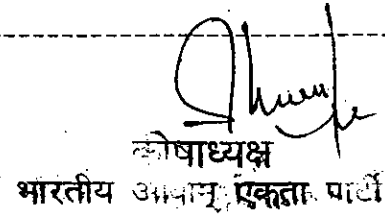 कोषाध्यक्ष
भारतीय एकता पार्टी